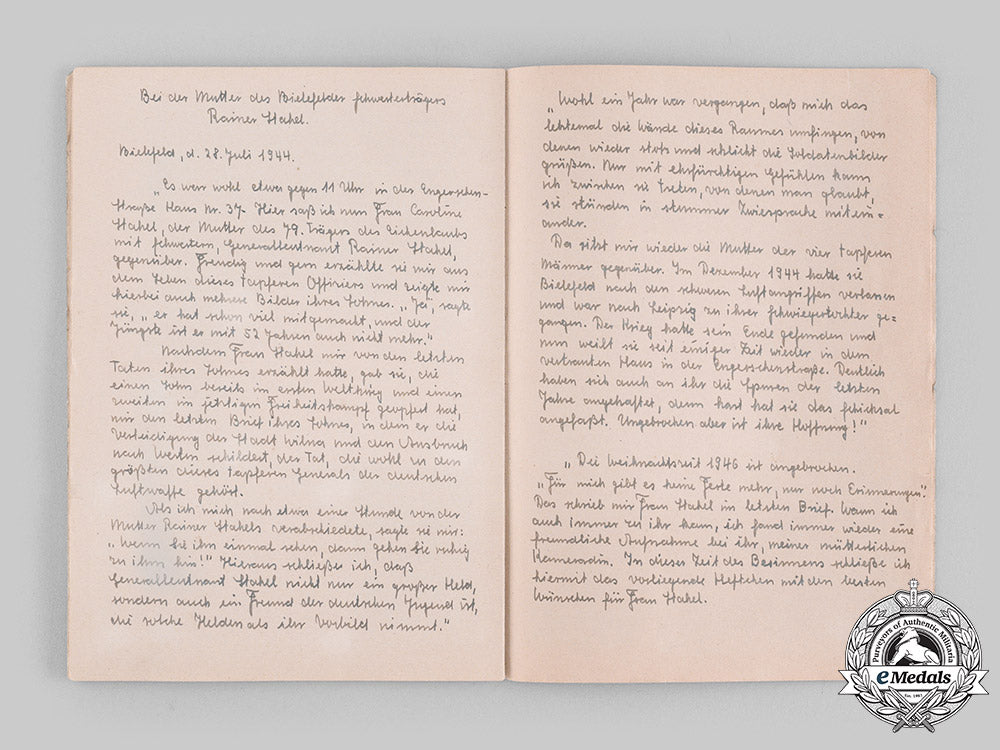 Bei der Mutter des Bielefelder Schwerterträgers
Rainer Stahel.
Bielefeld, d. 28. Juli 1944.
„Es war wohl etwa gegen 11 Uhr in der Engerschen-
straße Haus Nr. 37. Hier saß ich nun Frau Caroline
Stahel, der Mutter des 79. Trägers des Eichenlaubs
mit Schwertern, Generalleutnant Rainer Stahel,
gegenüber. Freudig und gern erzählte sie mir aus
dem Leben dieses tapferen Offiziers und zeigte mir
hierbei auch mehrere Bilder ihres Sohnes. „Ja, sagte
sie, „er hat schon viel mitgemacht, und der
Jüngste ist er mit 52 Jahren auch nicht mehr."
Nachdem Frau Stahel mir von den letzten
Taten ihres Sohnes erzählt hatte, gab sie, die
einen Sohn bereits im ersten Weltkrieg und einen
zweiten im jetzigen Freiheitskampf geopfert hat,
mir den letzten Brief ihres Sohnes, in dem er die
Verteidigung der Stadt Wilna und den Ausbruch
nach Westen schildert, der Tat, die wohl zu den
größten dieses tapferen Generals der deutschen
Luftwaffe gehört.
Als ich mich nach etwa einer Stunde von der
Mutter Rainer Stahels verabschiedete, sagte sie mir:
„Wenn Sie ihn einmal sehen, dann gehen Sie ruhig
zu ihm hin!" Hieraus schließe ich, daß
Generalleutnant Stahel nicht nur ein großer Held,
sondern auch ein Freund der deutschen Jugend ist,
die solche Helden als ihr Vorbild nimmt."
„Wohl ein Jahr war vergangen, daß mich das
letztemal die Wände dieses Raumes umfingen, von
denen wieder stolz und schlicht die Soldatenbilder
grüßen. Nur mit ehrfürchtigen Gefühlen kann
ich zwischen sie treten, von denen man glaubt,
sie stünden in stummer Zwiesprache mitein=
ander.
Da sitzt mir wieder die Mutter der vier tapferen
Männer gegenüber. Im Dezember 1944 hatte sie
Bielefeld nach den schweren Luftangriffen verlassen
und war nach Leipzig zu ihrer Schwiegertochter ge=
gangen. Der Krieg hatte sein Ende gefunden und
nun weilt sie seit einiger Zeit wieder in dem
vertrauten Haus in der Engerschenstraße. Deutlich
haben sich auch an ihr die Spuren der letzten
Jahre angehaftet, denn hart hat sie das Schicksal
angefaßt. Ungebrochen aber ist ihre Hoffnung!"
„Die Weihnachtszeit 1946 ist angebrochen.
„Für mich gibt es keine Feste mehr, nur noch Erinnerungen".
Das schrieb mir Frau Stahel im letzten Brief. Wann ich
auch immer zu ihr kam, ich fand immer wieder eine
freundliche Aufnahme bei ihr, meiner mütterlichen
Kameradin. In dieser Zeit des Besinnens schließe ich
hiermit das vorliegende Heftchen mit den besten
Wünschen für Frau Stahel.
Purveyors of Authentic Militaria
eMedals
Est. 1967